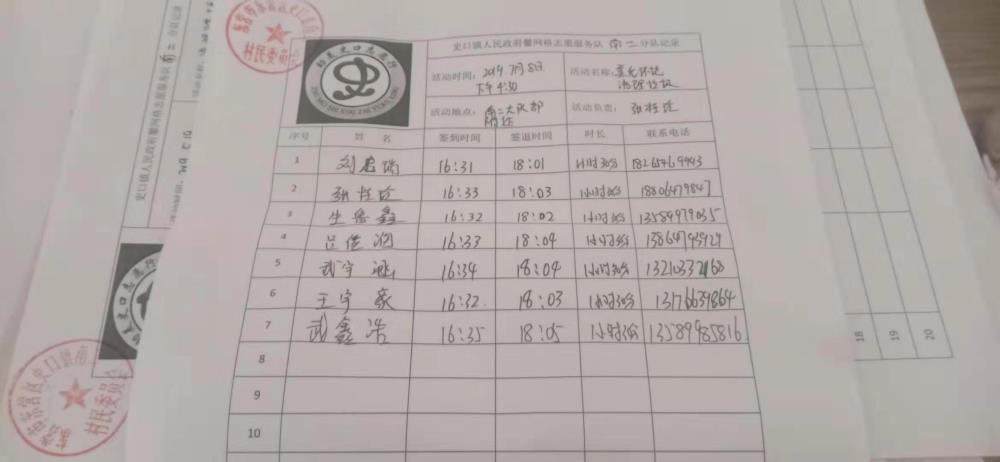 史口镇人民政府馨网格志愿服务队 南二 分队记录
活动时间: 2019.7月8日 下午4:30
活动名称: 美化环境 清理垃圾
活动地点: 南二大队部 附近
活动负责: 张桂珍
序号 姓 名 签到时间 签退时间 时长 联系电话
1 刘 瑞 16:31 18:01 1小时30分 18265469943
2 张桂珍 16:33 18:03 1小时30分 18806479847
3 鑫 16:32 18:02 1小时30分 13589979035
4 吕 润 16:33 18:04 1小时30分
5 武宇涵 16:34 18:04 1小时30分
6 王宇豪 16:32 18:03 1小时30分 13176639864
7 武鑫浩 16:35 18:05 1小时30分 13589985816
8
9
10
村民委员
史口镇人民政府馨网格志愿服务队 南二 分队记录
村民委员
18
19
20